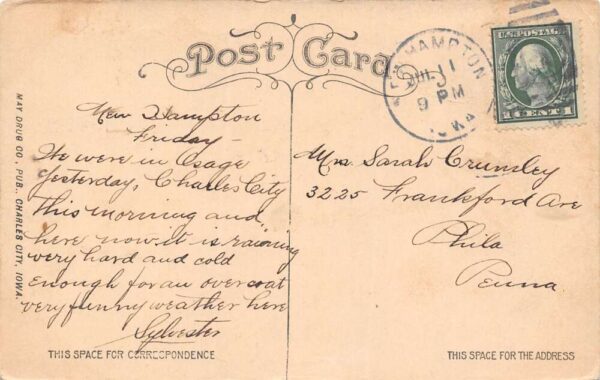 Post Card
NEW HAMPTON
JUL 11
9 PM
IOWA
U.S. POSTAGE
1 CENT 1
MAY DRUG CO., PUB., CHARLES CITY, IOWA.
New Hampton
Friday—
We were in Osage
yesterday, Charles City
this morning and
here now. It is raining
very hard and cold
enough for an overcoat
very funny weather here
Sylvester
THIS SPACE FOR CORRESPONDENCE
Mrs Sarah Crumley
3225 Frankford Ave
Phila
Penna
THIS SPACE FOR THE ADDRESS